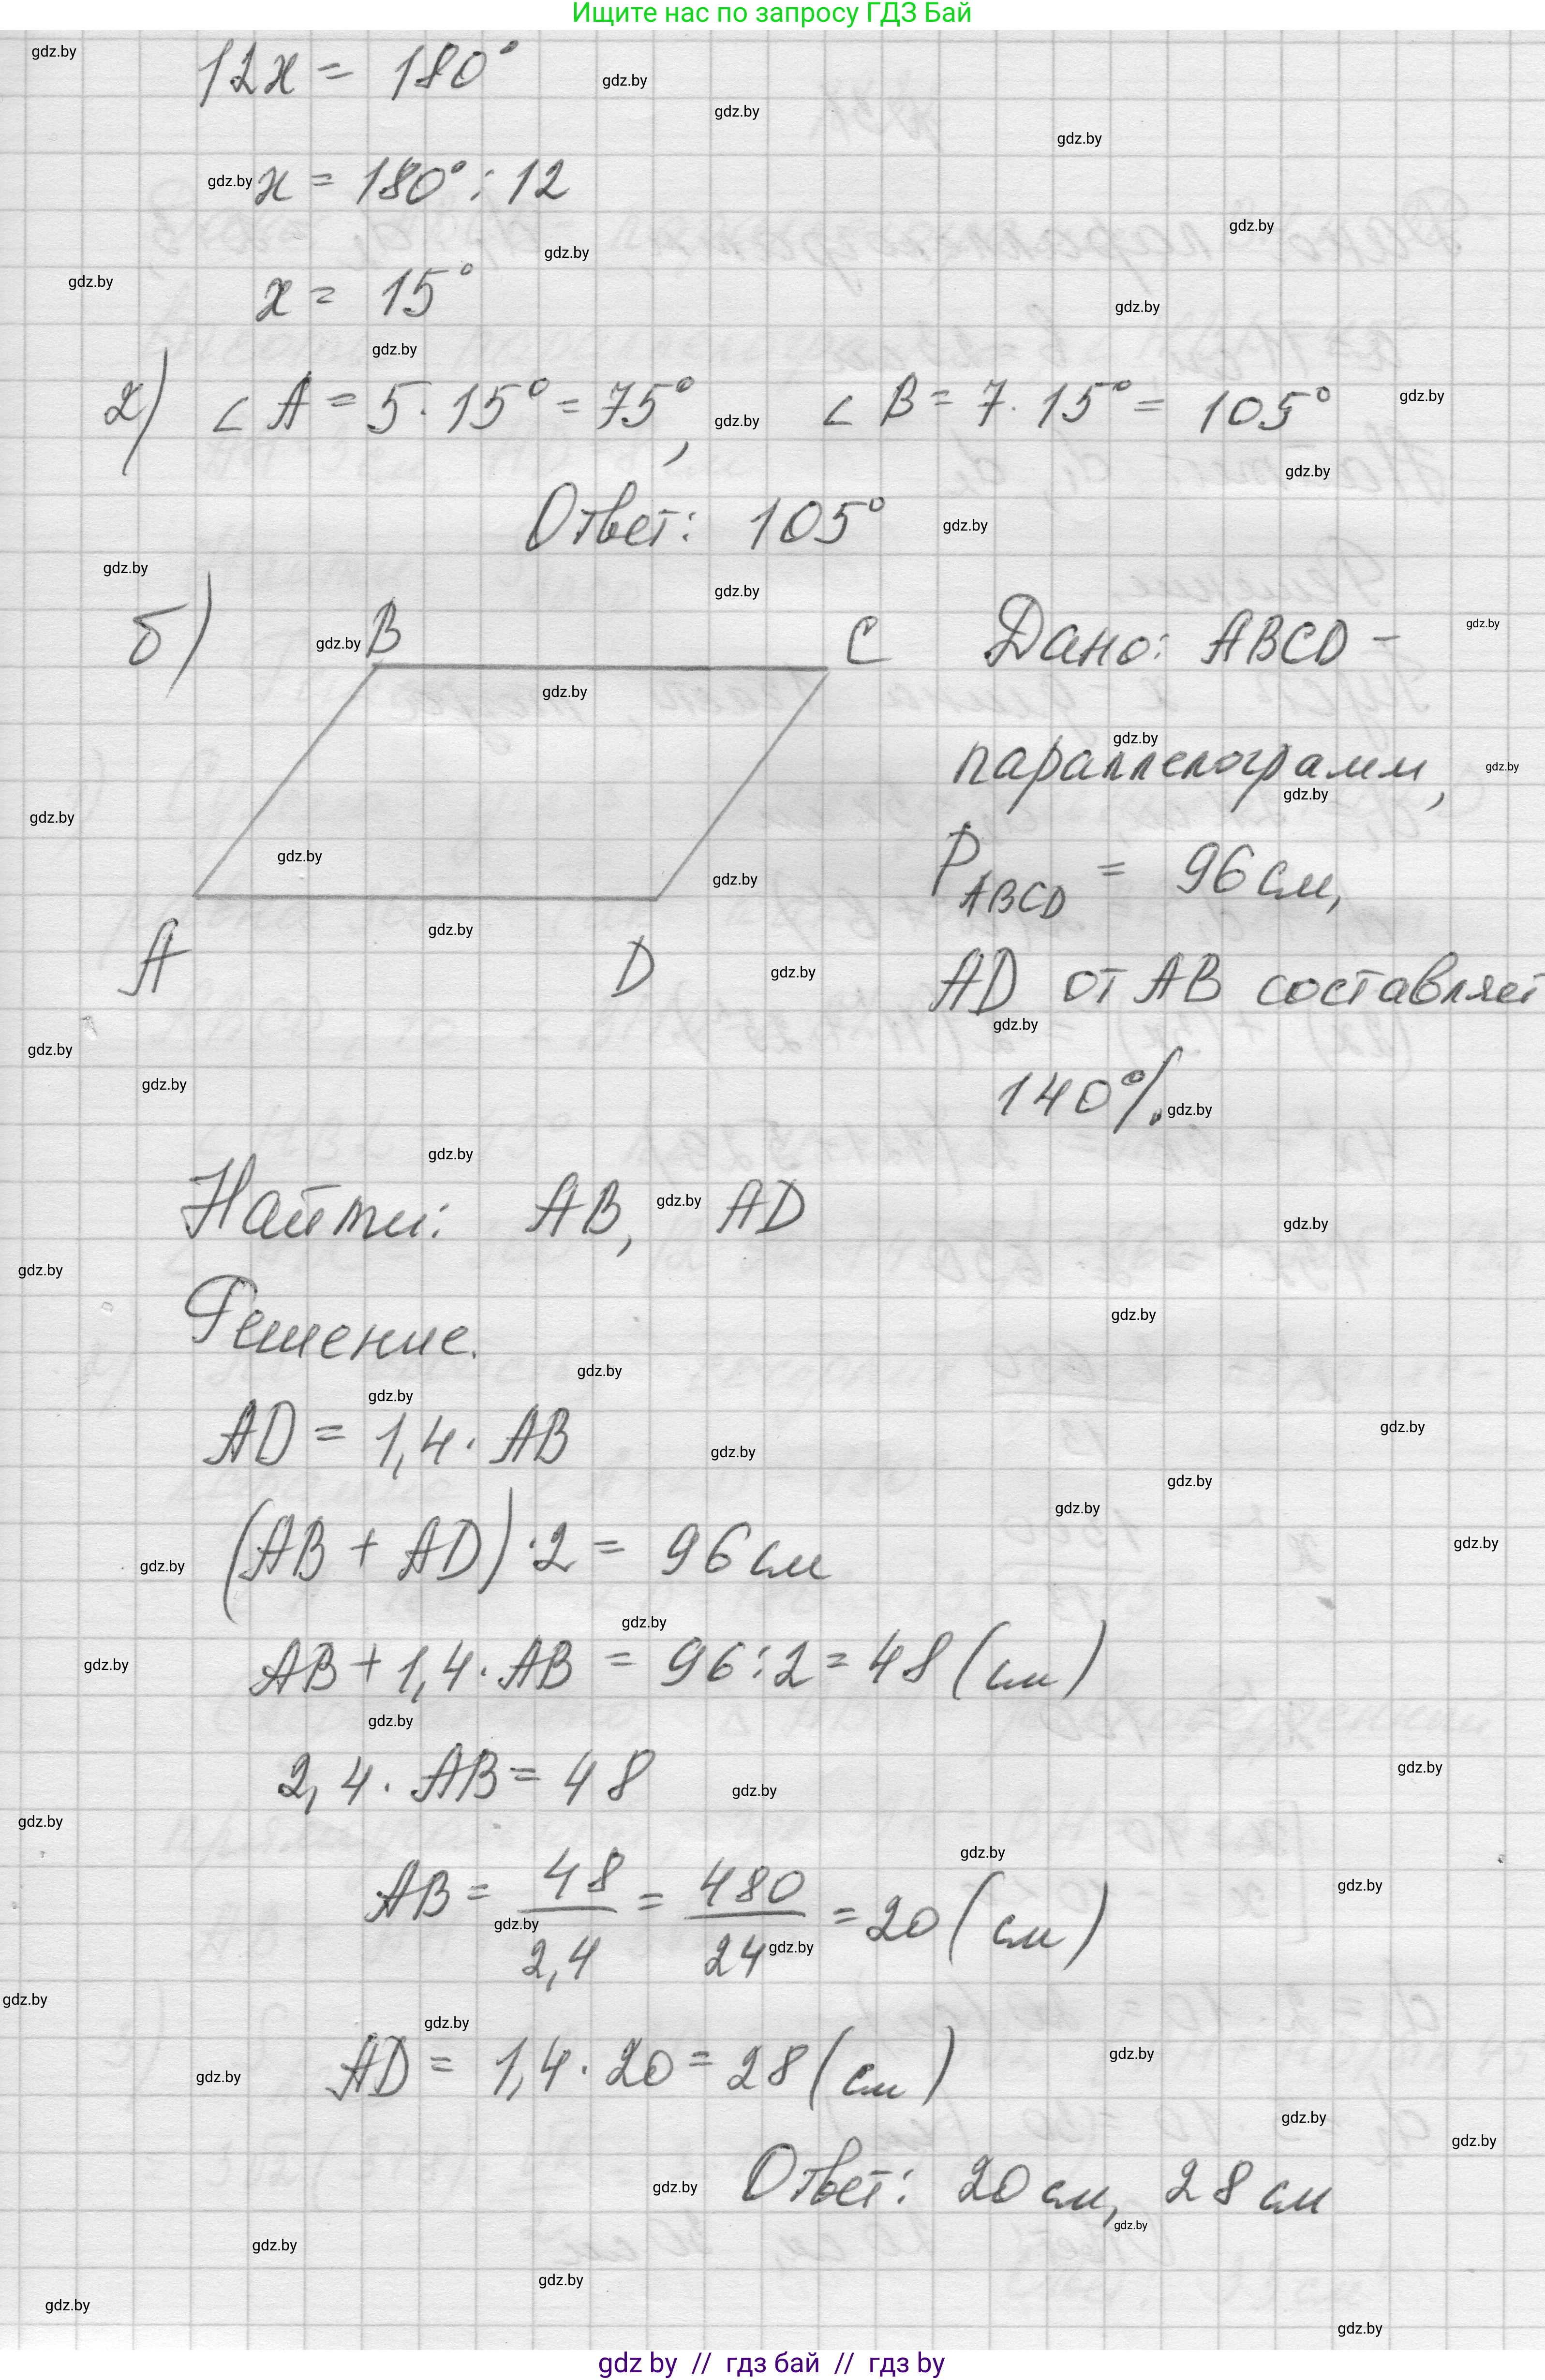 Ищите нас по запросу ГДЗ Бай
12x = 180°
x = 180° : 12
x = 15°
2) ∠ A = 5 · 15° = 75°, ∠ B = 7 · 15° = 105°
Ответ: 105°
б) B C Дано: ABCD –
параллелограмм,
P_ABCD = 96 см,
A D AD от AB составляет
140%.
Найти: AB, AD
Решение.
AD = 1,4 · AB
(AB + AD) · 2 = 96 см
AB + 1,4 · AB = 96 : 2 = 48 (см)
2,4 · AB = 48
AB = 48/2,4 = 480/24 = 20 (см)
AD = 1,4 · 20 = 28 (см)
Ответ: 20 см, 28 см
gdz by // гдз бай // гдз by